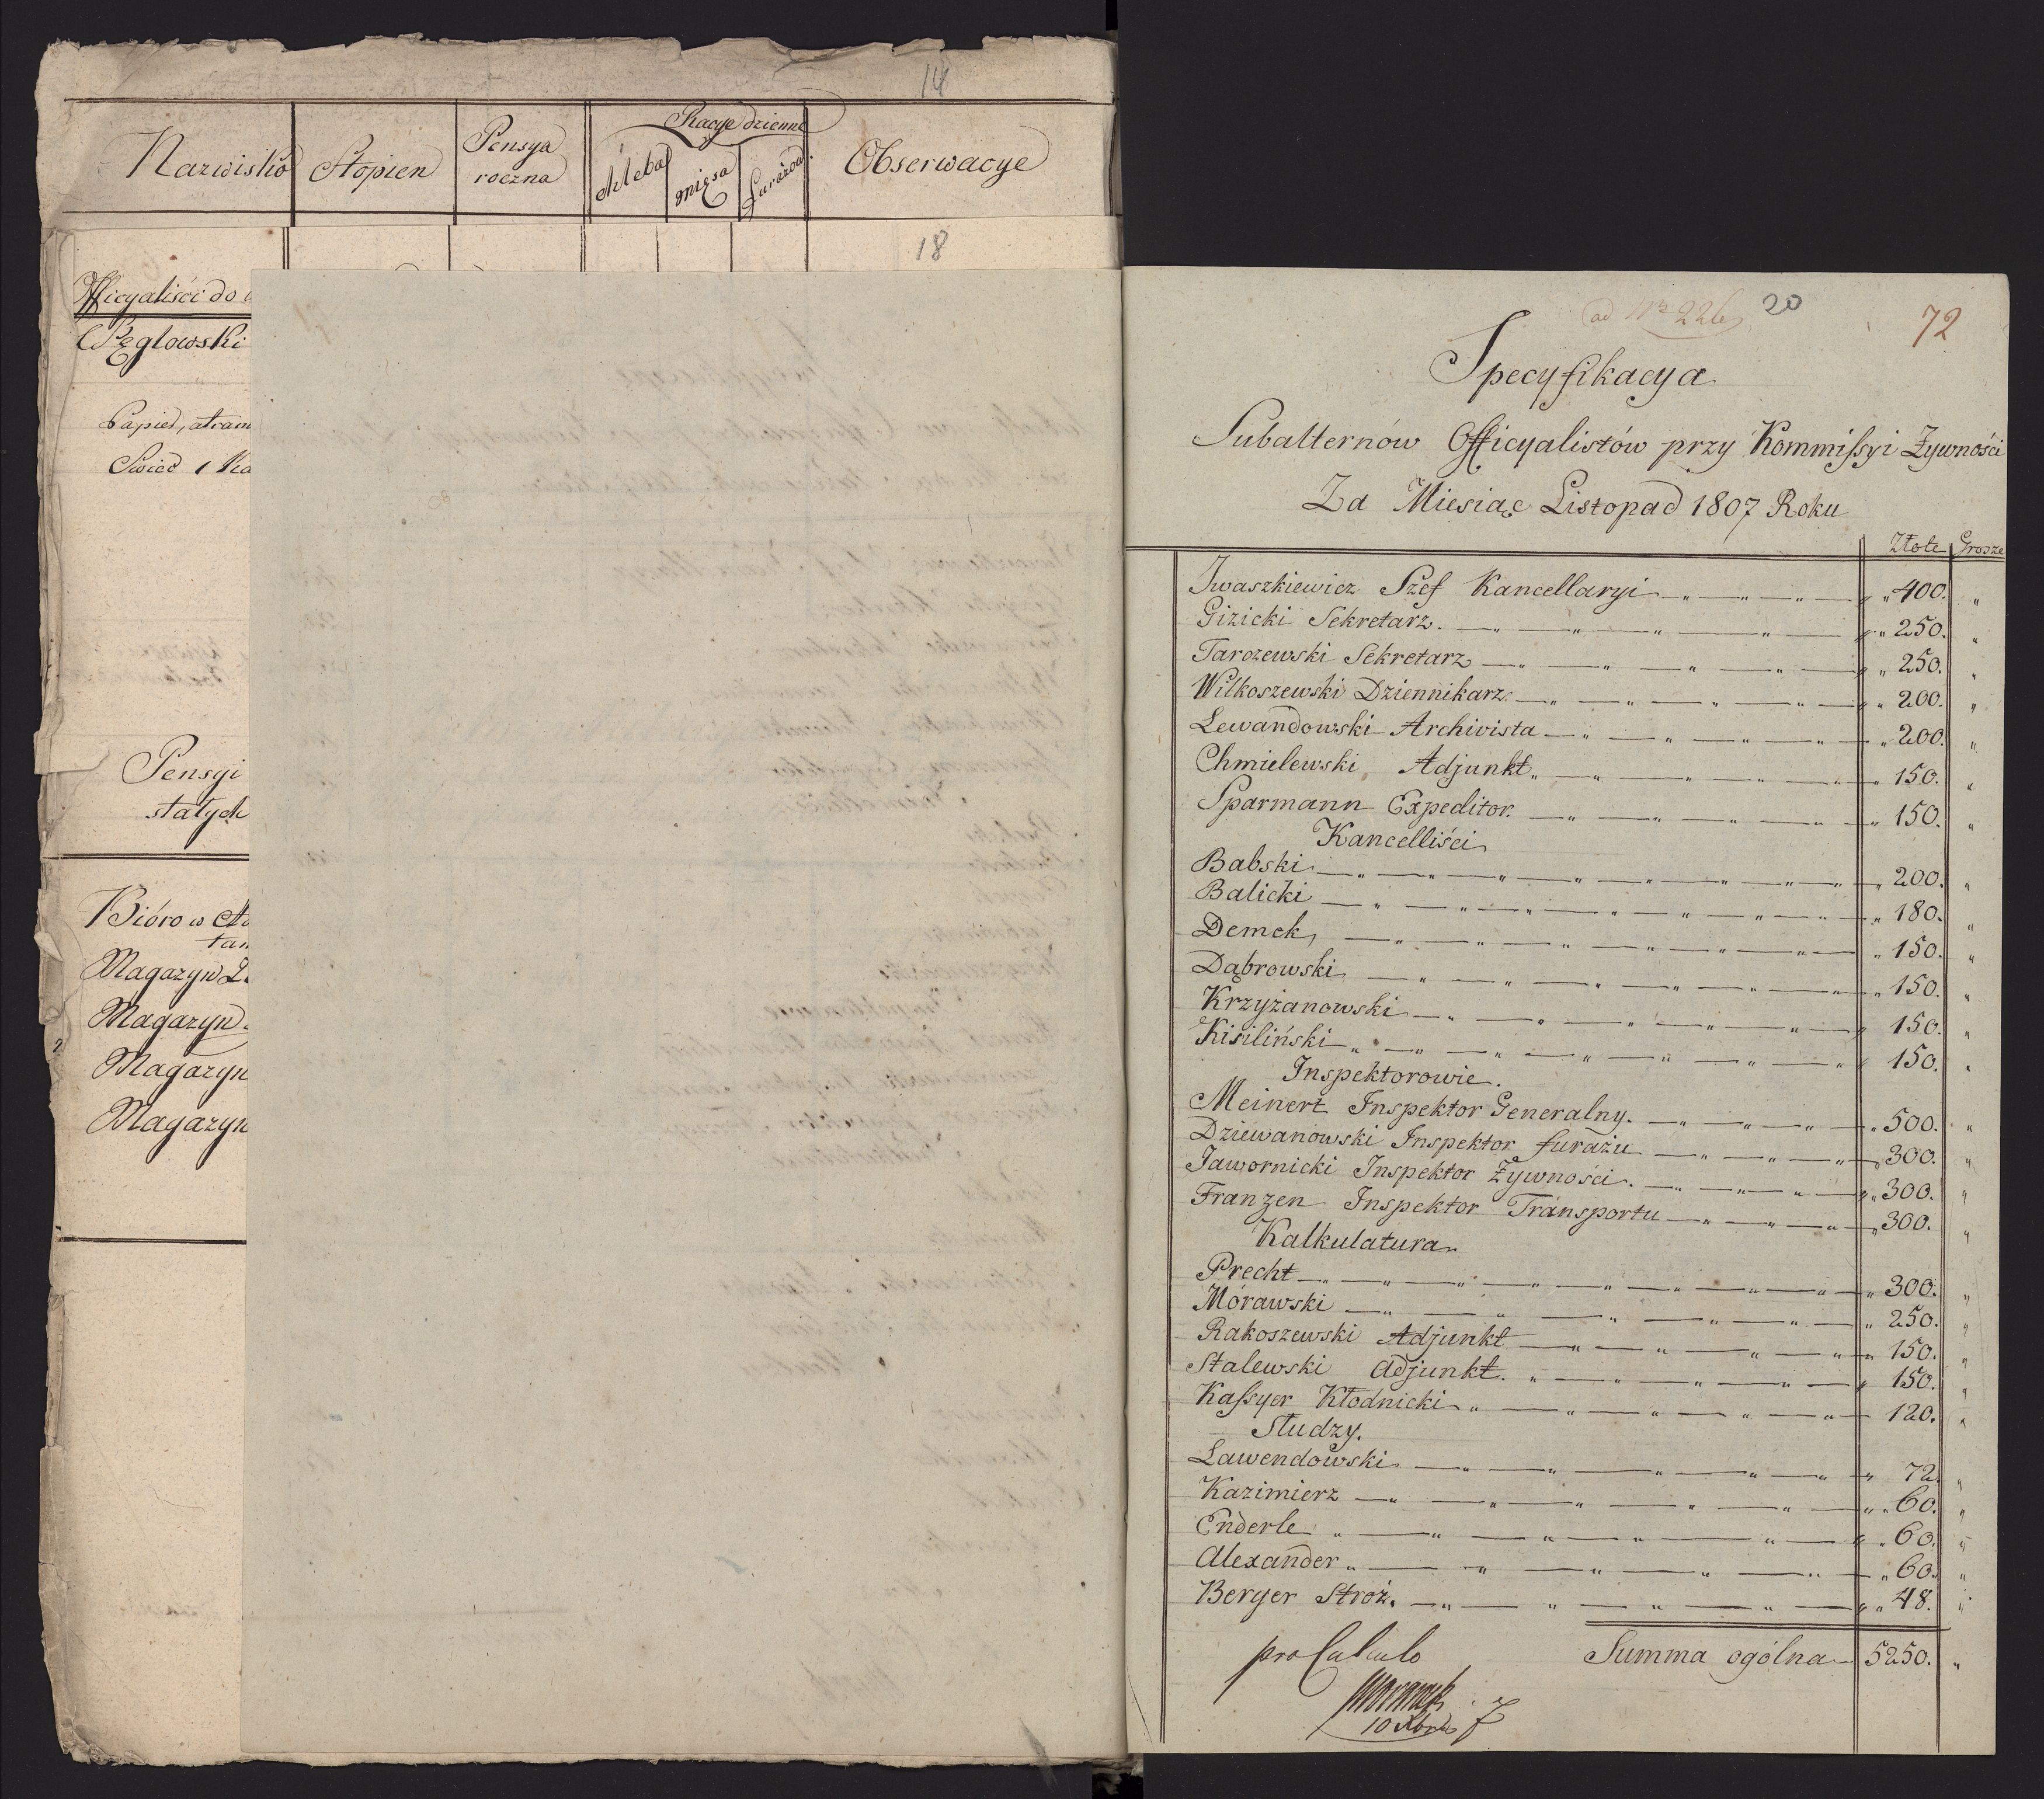 14
Nazwisko Stopien Pensya roczna Racye dzienne chleba mięsa furażow Obserwacye
18
Officyaliści do
Węglowski
Papier, atram
Swiec
Pensyi
stałych
Bióro w
Magazyn
Magazyn
Magazyn
Magazyn
ad Nr 226 20
72
Specyfikacya
Subalternów Officyalistów przy Kommissyi Żywności
Za Miesiąc Listopad 1807 Roku
Złote Grosze
Iwaszkiewicz Szef Kancellaryi — " — " — " — " 400. "
Gizicki Sekretarz. — " — " — " — " — " 250. "
Tarczewski Sekretarz — " — " — " — " — " 250. "
Wilkoszewski Dziennikarz. — " — " — " — " — " 200. "
Lewandowski Archivista — " — " — " — " — " 200. "
Chmielewski Adjunkt " — " — " — " — " — " 150. "
Sparmann Expeditor. — " — " — " — " — " 150. "
Kancelliści
Babski — " — " — " — " — " — " — " 200. "
Balicki — " — " — " — " — " — " — " 180. "
Demek, — " — " — " — " — " — " — " 150. "
Dąbrowski — " — " — " — " — " — " — " 150. "
Krzyżanowski — " — " — " — " — " — " 150. "
Kisiliński " — " — " — " — " — " — " 150. "
Inspektorowie.
Meinert Inspektor Generalny. — " — " — " — " 500. "
Dziewanowski Inspektor furażu — " — " — " — " 300. "
Jawornicki Inspektor Żywności. — " — " — " — " 300. "
Franzen Inspektor Transportu — " — " — " — " 300. "
Kalkulatura
Precht — " — " — " — " — " — " — " 300. "
Morawski — " — " — " — " — " — " 250. "
Rakoszewski Adjunkt — " — " — " — " — " 150. "
Stalewski Adjunkt. " — " — " — " — " — " 150. "
Kassyer Kłodnicki " — " — " — " — " — 120. "
Słudzy.
Lawendowski — " — " — " — " — " — " 72. "
Kazimierz — " — " — " — " — " — " 60. "
Enderle " — " — " — " — " — " — " 60. "
Alexander " — " — " — " — " — " 60. "
Berger Stroż. — " — " — " — " — " 48. "
pro Calculo Summa ogólna — 5250. "
10 Xbra